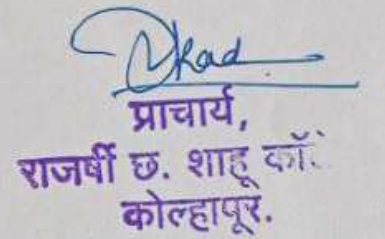 प्राचार्य,
राजर्षी छ. शाहू
कोल्हापूर.